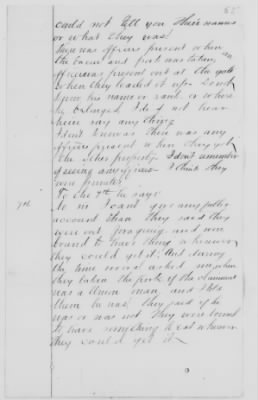 could not tell you their names
or what they was.
There was officers present when
the bacon and fat was taken, an
officer was present out at the gate
when they loaded it up. I dont
know his name or rank, or where
he belonged. I do not hear
him say any thing.
I dont know as there was any
officers present when they got
the other property. I dont remember
of seeing any officers. I think they
were privates.
To the 7th he says:
7th.
To m I cant give any further
account than they said they
were out foraging and was
bound to have thing wherever
they could get it. And during
the time some asked me, when
they taken the pork if the claimant
was a Union man, and I told
them he was. They said if he
was or was not they were bound
to have something to eat wherever
they could get it.